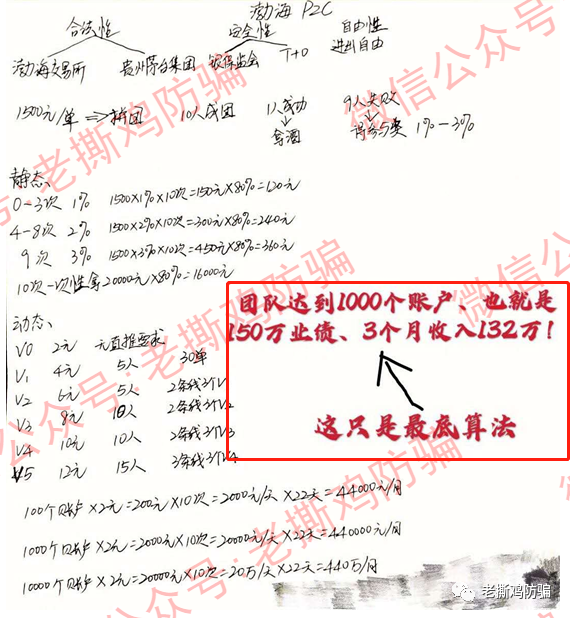 渤海 P2C
合法性 安全性 自由性
进出自由
渤海交易所 贵州茅台集团 银保监会 T+0
1500元/单 ⇒ 拼团 10人成团 1人成功 9人失败
↓拿酒 ↓得参与奖 1%-3%
静态、
0-3次 1% 1500×1%×10次=150元×80%=120元
4-8次 2% 1500×2%×10次=300元×80%=240元
9次 3% 1500×3%×10次=450元×80%=360元
10次一次性拿20000元×80%=16000元
动态、
V0 2元 无直推要求
V1 4元 5人 30单
V2 6元 5人 2条线3个V1
V3 8元 10人 2条线3个V2
V4 10元 10人 2条线3个V3
V5 12元 15人 3条线3个V4
团队达到1000个账户、也就是
150万业绩、3个月收入132万!
这只是最底算法
100个账户×2元=200元×10次=2000元/天×22天=44000元/月
1000个账户×2元=2000元×10次=20000元/天×22天=440000元/月
10000个账户×2元=20000元×10次=20万/天×22天=440万/月
微信公众号:老撕鸡防骗
老撕鸡防骗